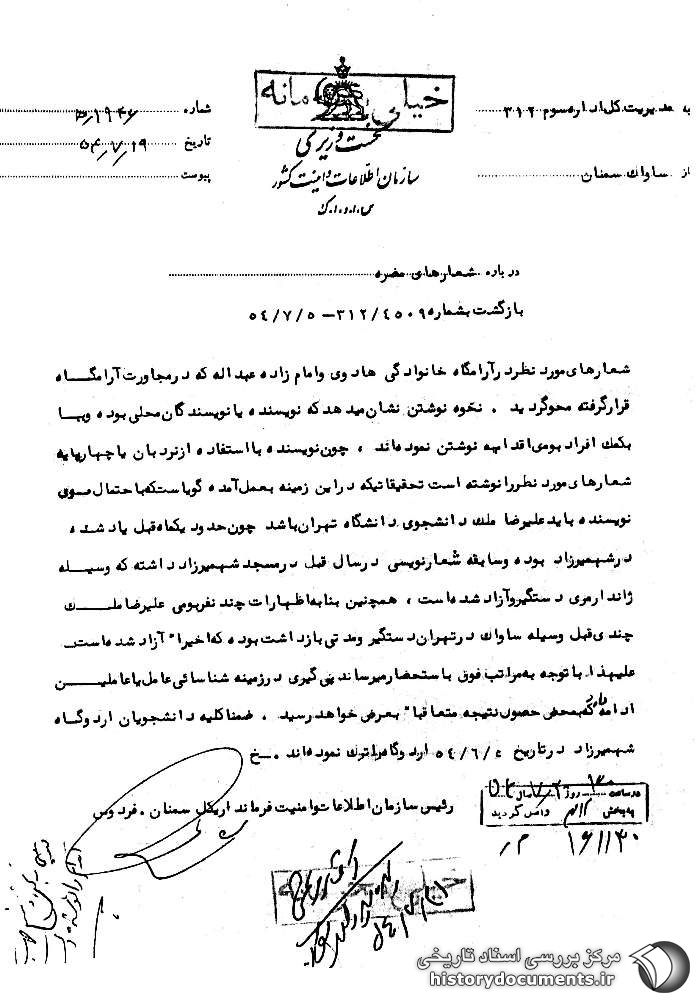 خیلی محرمانه
به مدیریت کل اداره سوم ۳۱۲
شماره ۱۹۴۶/ه
نخست وزیری
از ساواك سمنان
سازمان اطلاعات و امنیت کشور
تاریخ ۵۴/۷/۱۹
س.ا.و.ا.ك
پیوست
درباره شعارهای مضره
بازگشت بشماره ۳۱۲/٤۵۰۹ – ۵٤/۷/۵
شعارهای مورد نظر در آرامگاه خانوادگی هادوی و امام زاده عبداله که در مجاورت آرامگاه
قرار گرفته محو گردید . نحوه نوشتن نشان میدهد که نویسنده یا نویسندگان محلی بوده و یا
بکمك افراد بومی اقدام به نوشتن نموده‌اند ، چون نویسنده با استفاده از نردبان یا چهارپایه
شعارهای مورد نظر را نوشته است تحقیقاتیکه در این زمینه بعمل آمده گویاست که باحتمال قوی
نویسنده باید علیرضا ملك دانشجوی دانشگاه تهران باشد چون حدود یکماه قبل یاد شده
در شهمیرزاد بوده و سابقه شعارنویسی در سال قبل در مسجد شهمیرزاد داشته که وسیله
ژاندارمری دستگیر و آزاد شده است ، همچنین بنا به اظهارات چند نفر بومی علیرضا ملك
چندی قبل وسیله ساواك در تهران دستگیر و مدتی بازداشت بوده که اخیرا" آزاد شده است
علیهذا با توجه به مراتب فوق باستحضار میرساند پی گیری در زمینه شناسائی عامل یا عاملین
ادامه دارد که بمحض حصول نتیجه متعاقبا" بعرض خواهد رسید . ضمنا کلیه دانشجویان اردوگاه
شهمیرزاد در تاریخ ۵٤/۶/ اردوگاه را ترك نموده‌اند . خ
رئیس سازمان اطلاعات و امنیت فرمانداریکل سمنان . فردوس
در ساعت روز
به بخش ۳۱۲ واصل گردید
۱۶۱۱۴۰
خیلی محرمانه
مرکز بررسی اسناد تاریخی
historydocuments.ir